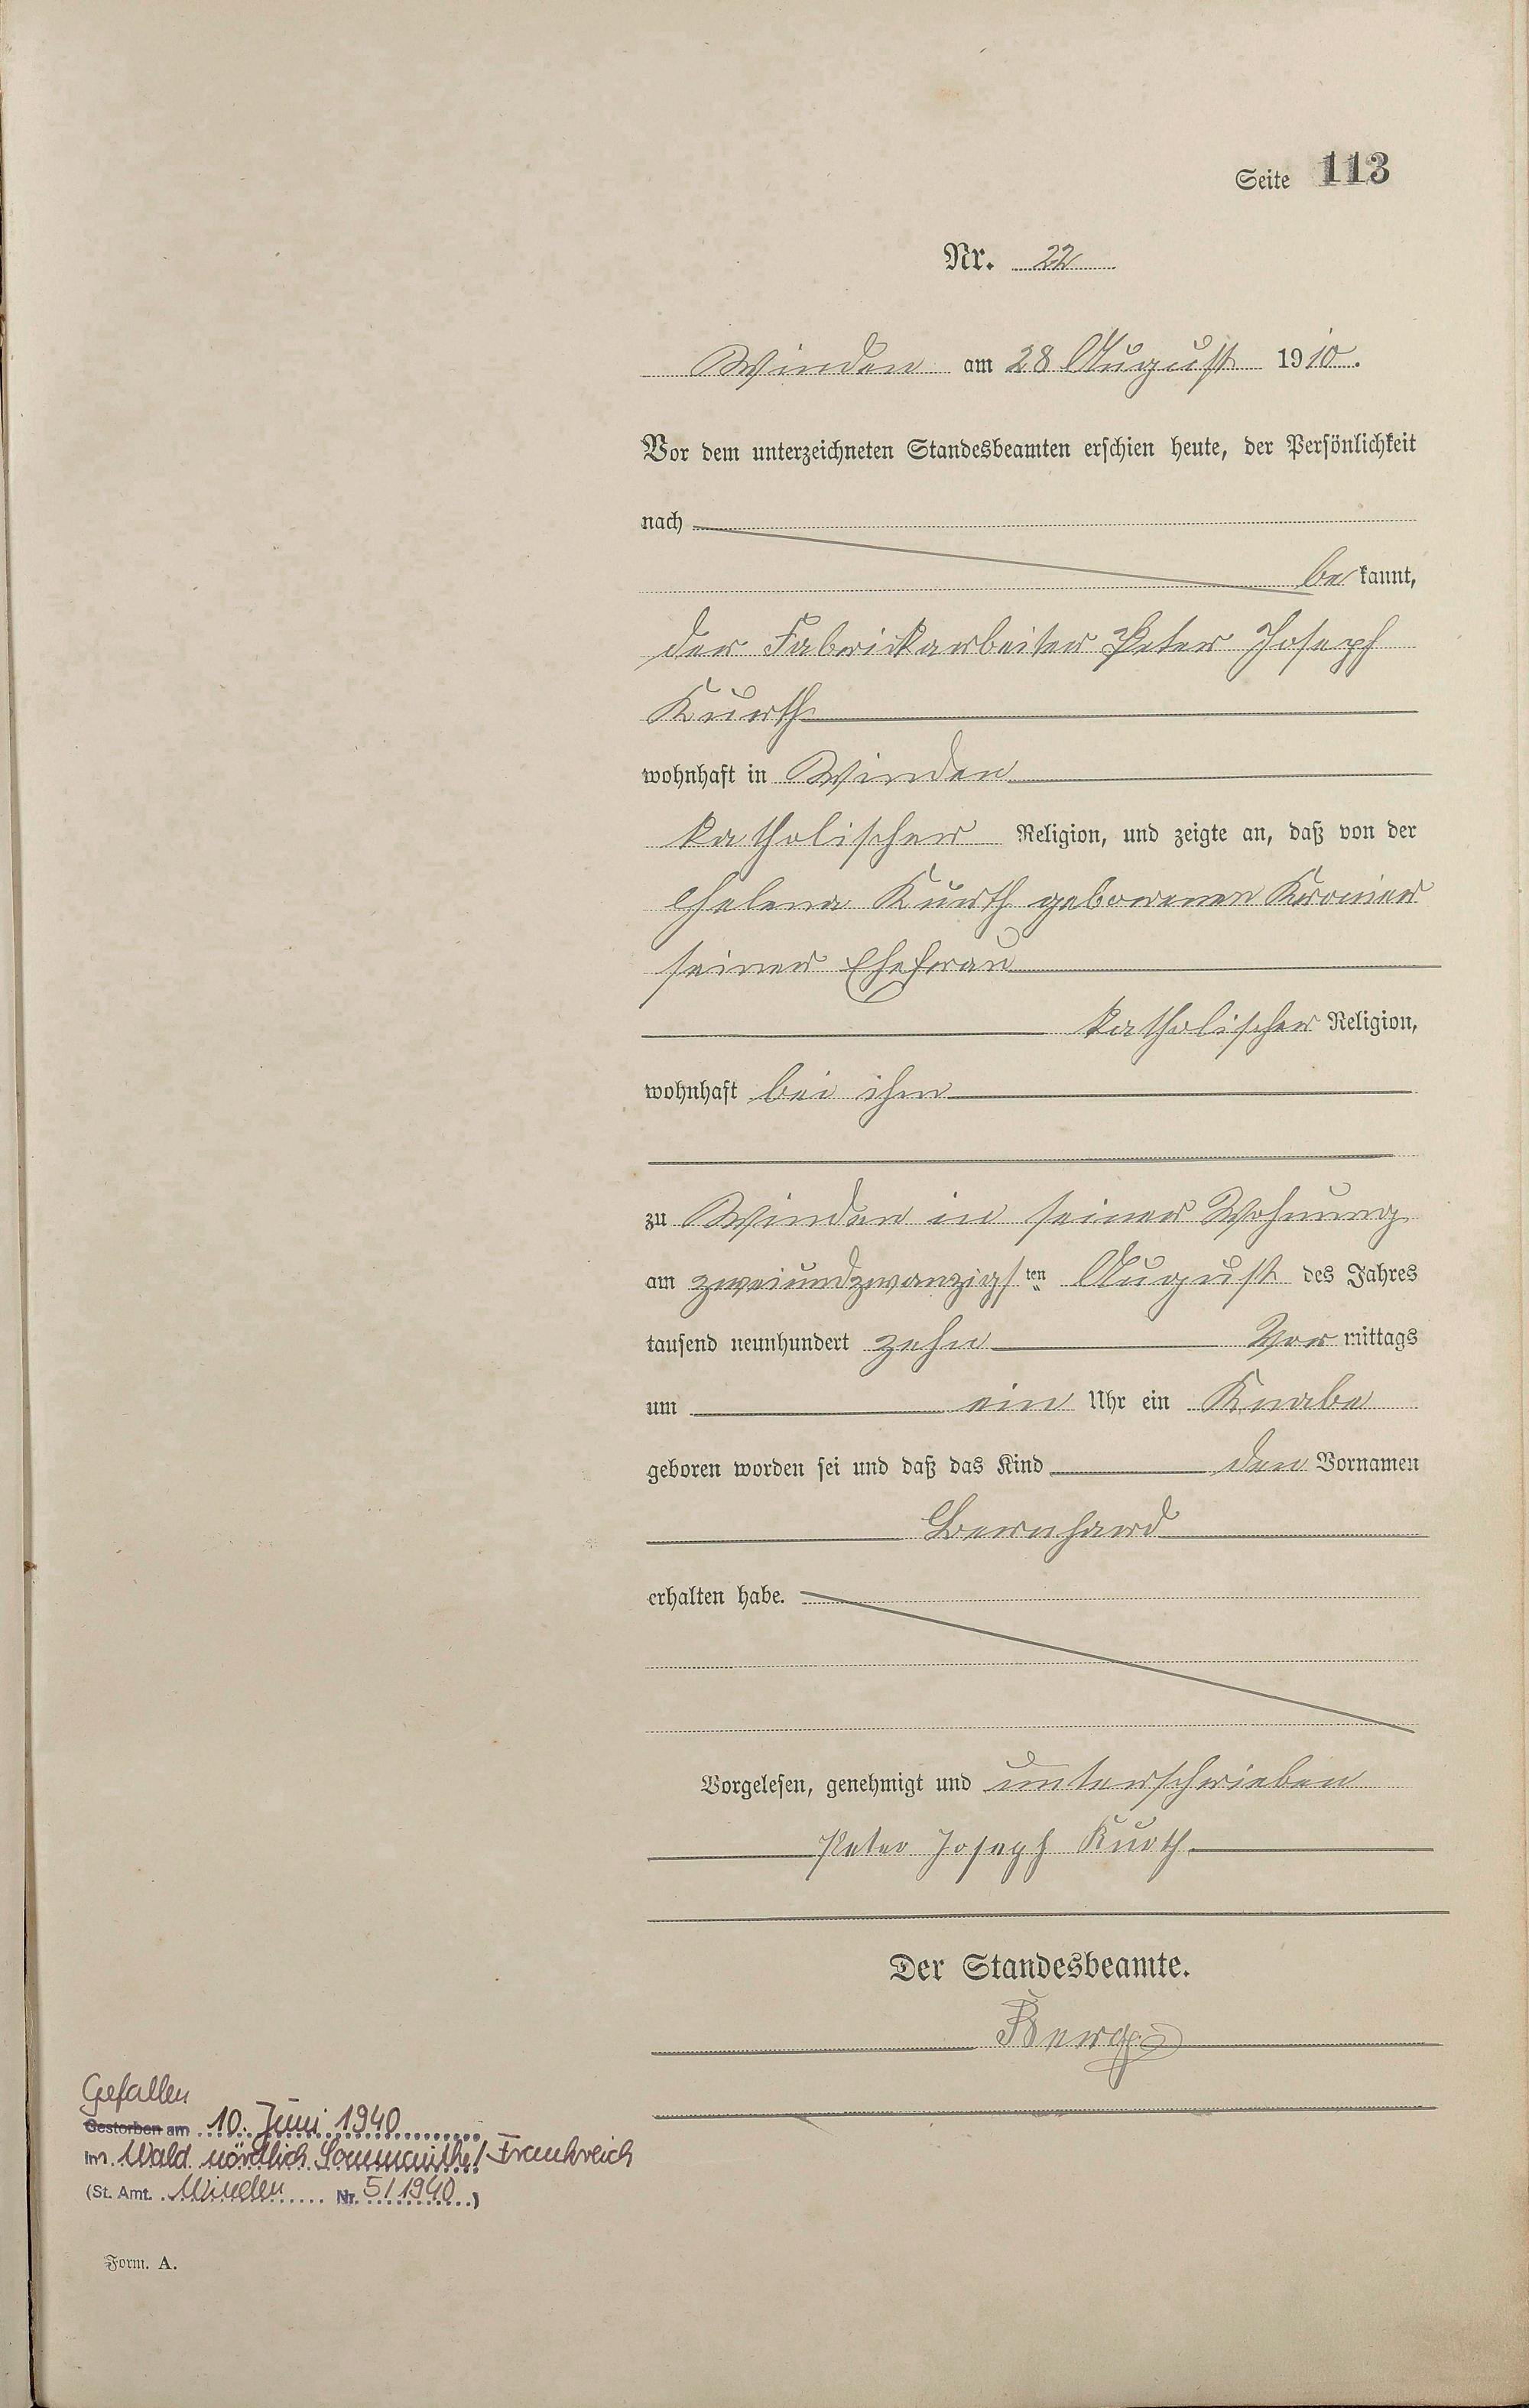 Seite 113
Nr. 22
Winden am 28 August 1910.
Vor dem unterzeichneten Standesbeamten erschien heute, der Persönlichkeit
nach
bekannt,
der Fabrickarbeiter Peter Joseph
Kurth
wohnhaft in Winden
katholischer Religion, und zeigte an, daß von der
Helena Kurth geborenen
seiner Ehefrau
katholischer Religion,
wohnhaft bei ihm
zu Winden in seiner Wohnung
am zweiundzwanzigsten August des Jahres
tausend neunhundert zehn Vormittags
um ein Uhr ein Knabe
geboren worden sei und daß das Kind den Vornamen
Bernhard
erhalten habe.
Vorgelesen, genehmigt und unterschrieben
Peter Joseph Kurth
Der Standesbeamte.
Berg
Gefallen
Gestorben am 10. Juni 1940
im Wald nördlich Sommauthe/Frankreich
(St. Amt. Winden Nr. 5/1940)
Form. A.